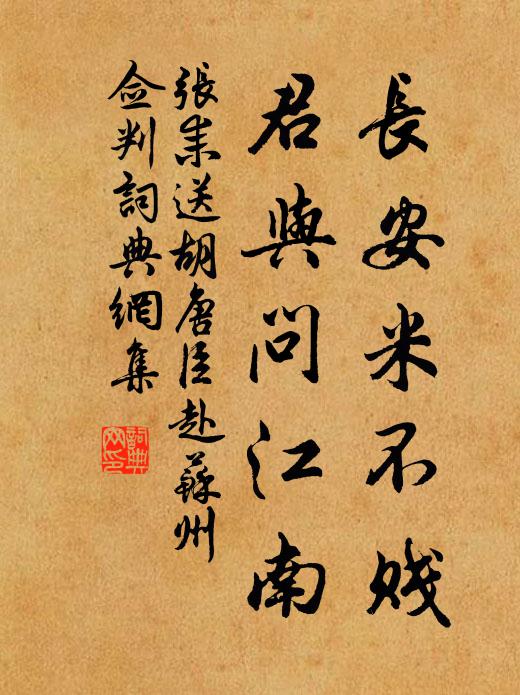 長安米不贱
君與問江南
張耒送胡唐臣赴蘇州
佥判詞典網集
詞典
网印